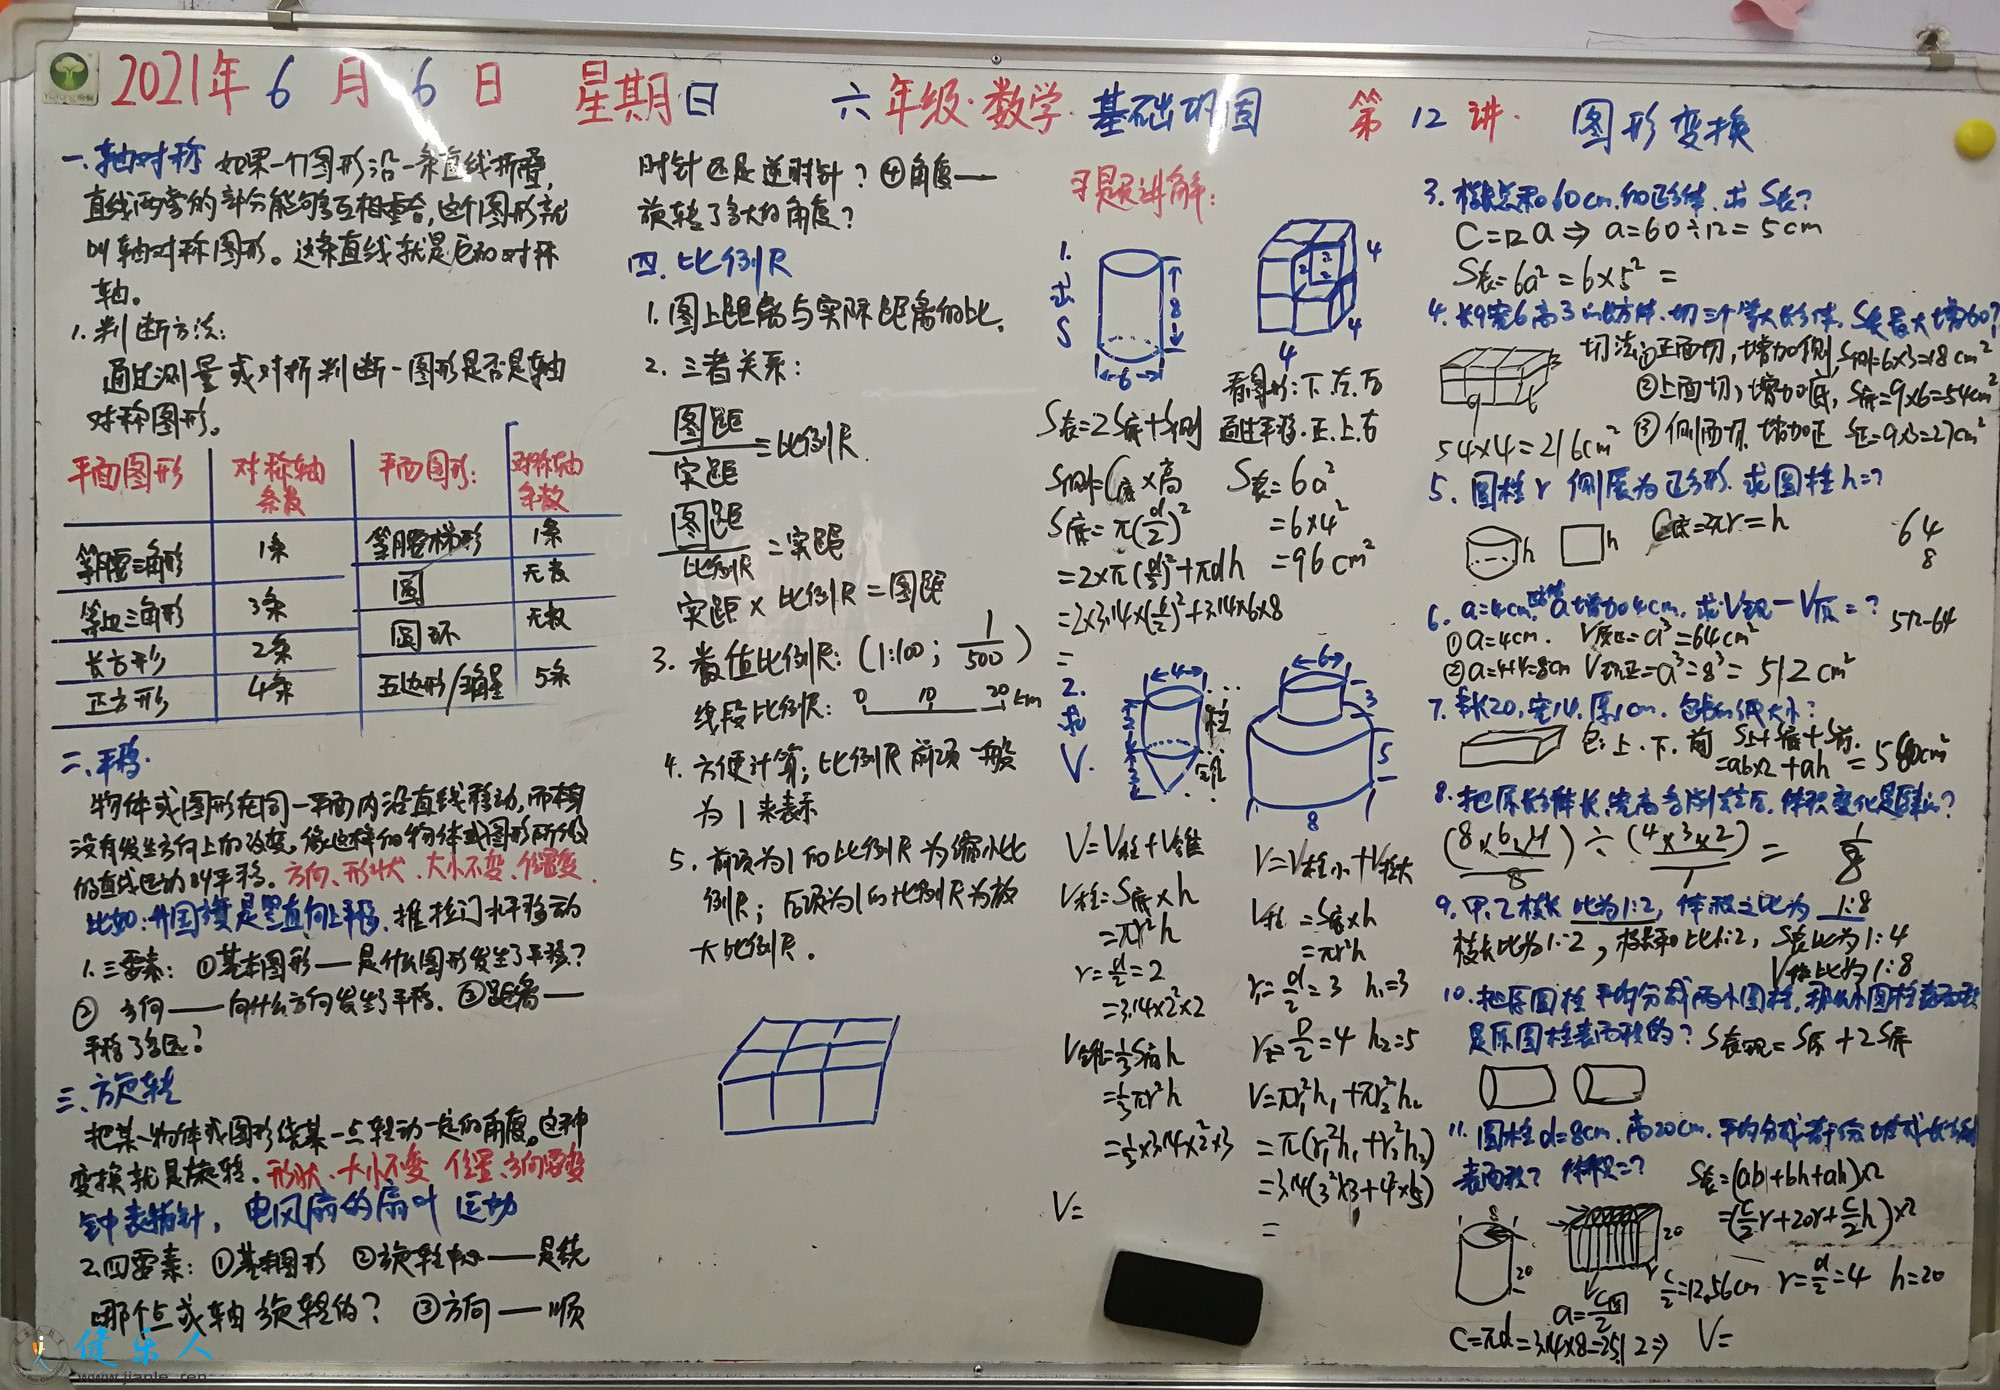 2021年 6 月 6 日 星期日 六年级·数学 基础巩固 第 12 讲· 图形变换
一.轴对称 如果一个图形沿一条直线折叠,
直线两旁的部分能够互相重合,这个图形就
叫轴对称图形。这条直线就是它的对称
轴。
1.判断方法:
通过测量或对折判断一图形是否是轴
对称图形。
平面图形 对称轴条数 平面图形: 对称轴条数
等腰三角形 1条 等腰梯形 1条
等边三角形 3条 圆 无数
长方形 2条 圆环 无数
正方形 4条 五边形/五角星 5条
二.平移.
物体或图形在同一平面内沿直线移动,而本身
没有发生方向上的改变。像这样的物体或图形所做
的直线运动叫平移。方向、形状、大小不变、位置变.
比如:升国旗是竖直向上平移.推拉门水平移动
1.三要素: ①基本图形—是什么图形发生了平移?
② 方向——向什么方向发生了平移. ③距离——
平移了多远?
三、旋转
把某一物体或图形绕某一点转动一定的角度。这种
变换就是旋转。形状、大小不变 位置、方向要变
钟表指针, 电风扇的扇叶 运动
2.四要素: ①基本图形 ②旋转中心——是绕
哪个点或轴旋转的? ③方向——顺
时针还是逆时针? ④角度——
旋转了多大的角度?
四.比例尺
1.图上距离与实际距离的比.
2.三者关系:
图距/实距=比例尺
图距/比例尺=实距
实距×比例尺=图距
3.数值比例尺:(1:100; 1/500)
线段比例尺: 0 10 20 km
4.方便计算;比例尺前项一般
为1来表示
5.前项为1的比例尺为缩小比
例尺;后项为1的比例尺为放
大比例尺.
习题讲解:
1.
求
S
8
6
4
4
4
2
2
2
看图形:下.左.后
S表=2S底+S侧 通过平移.正.上.右
S侧=C底×高 S表=6a²
S底=π(d/2)² =6×4²
=2×π(d/2)²+πdh =96cm²
=2×3.14×(6/2)²+3.14×6×8
=
2.
求
V.
4
柱
锥
6
3
5
8
V=V柱+V锥 V=V柱小+V柱大
V柱=S底×h V柱=S底×h
=πr²h =πr²h
r=d/2=2 r₁=d/2=3 h₁=3
=3.14×2²×2
V锥=1/3S底h r₂=D/2=4 h₂=5
=1/3πr²h V=πr₁²h₁+πr₂²h₂
=1/3×3.14×2²×3 =π(r₁²h₁+r₂²h₂)
=3.14(3²×3+4²×5)
V= =
3.棱长总和60cm.的正方体.求S表?
C=12a⇒a=60÷12=5cm
S表=6a²=6×5²=
4.长9宽6高3的长方体.切三个
切法①正面切,增加侧,S侧=6×3=18cm²
②上面切,增加底,S底=9×6=54cm²
54×4=216cm² ③侧面切.增加正 S正=9×3=27cm²
9
6
5.圆柱r 侧展为正方形.求圆柱h=?
h
h
C底=2πr=h
64
8
6.a=4cm a增加4cm.求V现-V原=?
512-64
①a=4cm. V原正=a³=64cm²
②a=4+4=8cm V现正=a³=8³=512cm²
7.长20,宽14,厚1cm.包书的纸大小?
包:上.下.前 S上+S底+S前.
=ab×2+ah =580cm²
8.把原长方体长.宽.高
体积变化是
(8×6×4)/8÷(4×3×2)/1=1/8
9.甲.乙棱长比为1:2,体积之比为1:8
棱长比为1:2,棱长和比1:2,S表比为1:4
V体比为1:8
10.把原圆柱平均分成两个小圆柱.那么小圆柱表面积
是原圆柱表面积的? S表现=S原+2S底
11.圆柱d=8cm.高20cm.平均分成若干份拼成长方体
表面积? 体积=? S表=(ab+bh+ah)×2
=(C/2r+20r+C/2h)×2
8
20
20
r
a=C圆/2
C/2=12.56cm r=d/2=4 h=20
C=πd=3.14×8=25.12⇒ V=
健乐人
www.jianle.ren